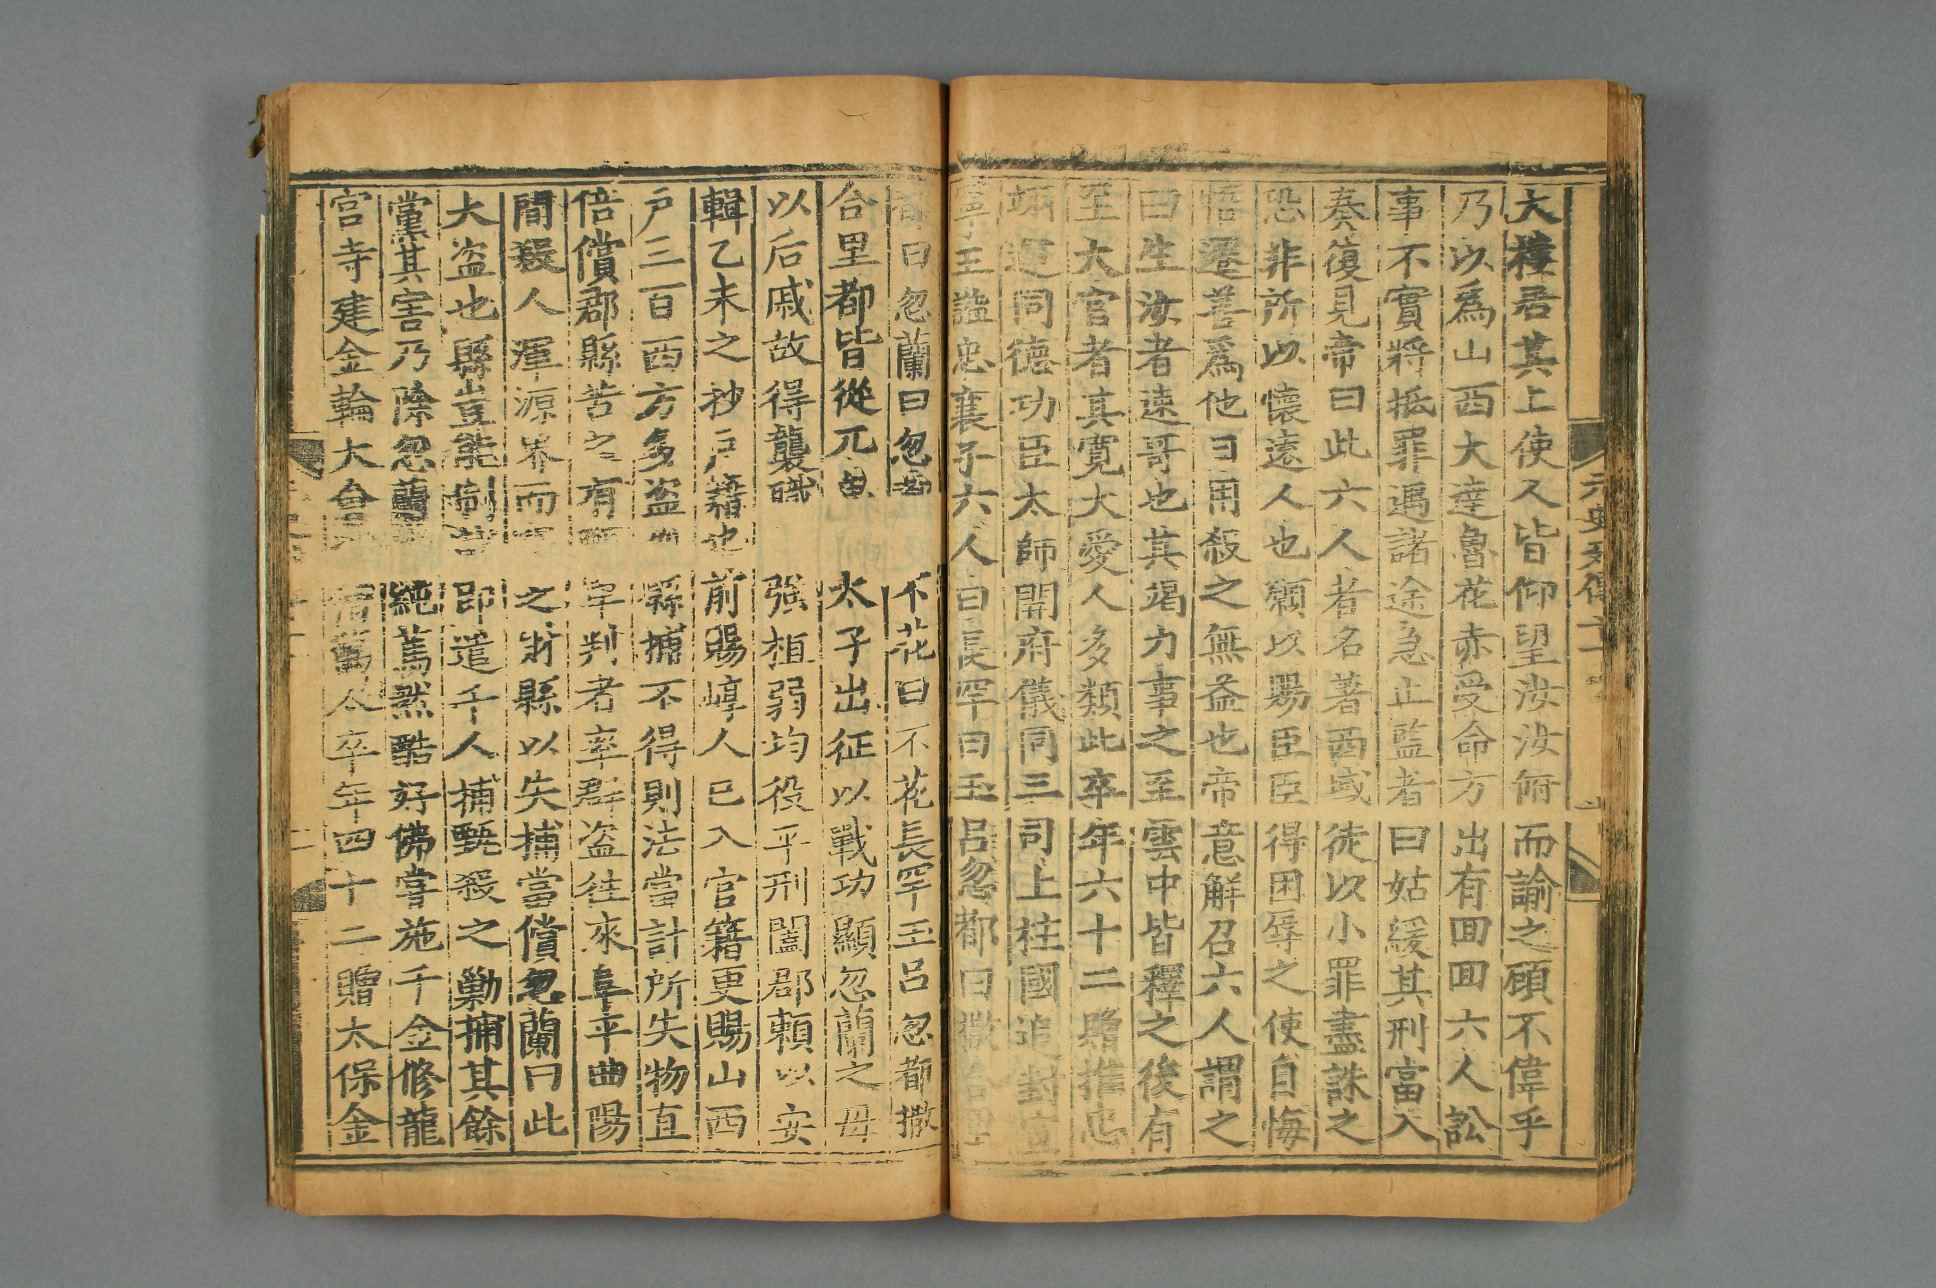 大樓居其上使人皆仰望汝汝俯而諭之顧不偉乎
乃以爲山西大達魯花赤受命方出有回回六人訟
事不實將抵罪遇諸途急止監者曰姑緩其刑當入
奏復見帝曰此六人者名著西域徒以小罪盡誅之
恐非所以懷遠人也願以賜臣臣得困辱之使自悔
悟遷善爲他日用殺之無益也帝意解召六人謂之
曰生汝者速哥也其竭力事之至雲中皆釋之後有
至大官者其寛大愛人多類此卒年六十二贈推忠
翊運同徳功臣太師開府儀同三司上柱國追封宣
寧王諡忠襄子六人曰長罕曰玉呂忽都曰撒合里
都曰忽蘭曰忽都不花曰不花長罕玉呂忽都撒
合里都皆從兀魯太子出征以戰功顯忽蘭之母
以后戚故得襲職強植弱均役平刑闔郡頼以安
輯乙未之抄戸籍也前賜崞人已入官籍更賜山西
戸三百西方多盗縣捕不得則法當計所失物直
倍償郡縣苦之有判者率群盗往來阜平曲陽
間殺人渾源界而之財縣以失捕當償忽蘭曰此
大盗也縣豈能制即遣千人捕甄殺之勦捕其餘
黨其害乃除忽蘭純篤然酷好佛嘗施千金修龍
宫寺建金輪大會萬人卒年四十二贈太保金